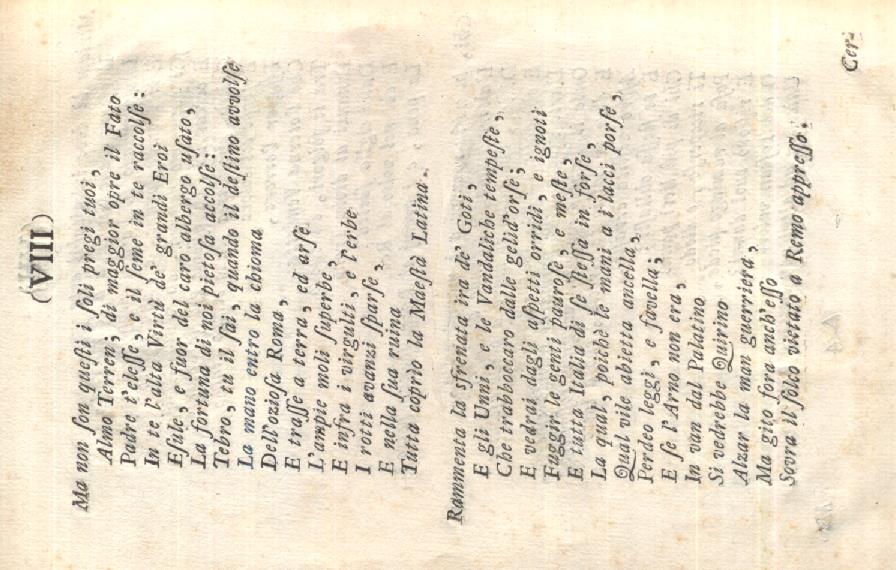 (VIII)
Ma non ſon queſti i ſoli pregi tuoi,
Almo Terren; di maggior opre il Fato
Padre t'eleſſe, e il ſeme in te raccolſe:
In te l'alta Virtù de' grandi Eroi
Eſule, e fuor del caro albergo uſato,
La fortuna di noi pietoſa accolſe:
Tebro, tu il ſai, quando il deſtino avvolſe
La mano entro la chioma
Dell'ozioſa Roma,
E traſſe a terra, ed arſe
L'ampie moli ſuperbe,
E infra i virgulti, e l'erbe
I rotti avanzi ſparſe,
E nella ſua ruina
Tutta coprìo la Maeſtà Latina.
Rammenta la sfrenata ira de' Goti,
E gli Unni, e le Vandaliche tempeſte,
Che traboccaro dalle gelid'orſe;
E vedrai dagli aſpetti orridi, e ignoti
Fuggir le genti pauroſe, e meſte,
E tutta Italia di ſe ſteſſa in forſe,
La qual, poichè le mani a i lacci porſe,
Qual vile abietta ancella,
Perdeo leggi, e favella;
E ſe l'Arno non era,
In van dal Palatino
Si vedrebbe Quirino
Alzar la man guerriera,
Ma gito fora anch'eſſo
Sovra il ſolco vietato a Remo appreſſo.
Cer-